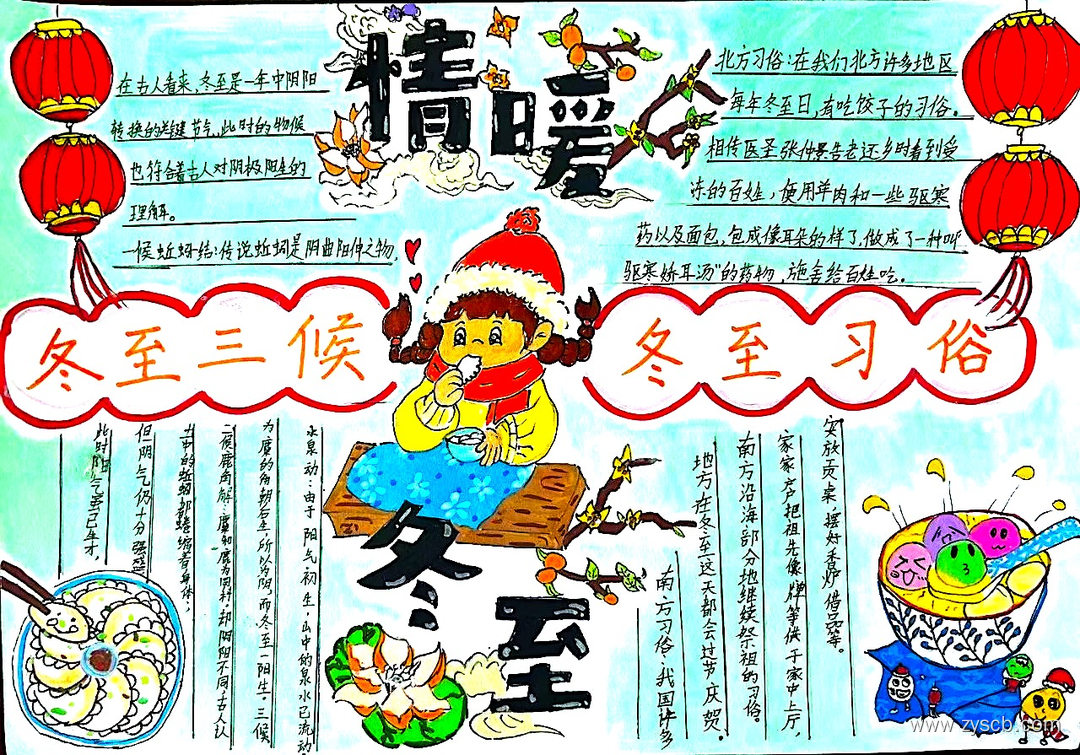 情暖
冬至
在古人看来,冬至是一年中阴阳
转换的关键节气,此时的物候
也符合着古人对阴极阳生的
理解。
一候蚯蚓结:传说蚯蚓是阴曲阳伸之物,
冬至三候
此时阳气虽已生才,
但阴气仍十分强盛
土中的蚯蚓都蜷缩着身体;
二候麋角解:麋和鹿为同科,却阴阳不同古人认
为麋的角朝后生,所以为阴,而冬至一阳生,三候
水泉动:由于阳气初生,山中的泉水已流动
北方习俗:在我们北方许多地区
每年冬至日,有吃饺子的习俗。
相传医圣张仲景告老还乡时看到受
冻的百姓,便用羊肉和一些驱寒
药以及面包,包成像耳朵的样了,做成了一种叫
驱寒娇耳汤"的药物,施舍给百姓吃。
冬至习俗
南方习俗:我国许多
地方在冬至这天都会过节庆贺。
南方沿海部分地继续祭祖的习俗。
家家户户把祖先像牌等供于家中上厅
安放贡桌,摆好香炉借品等。
www.zyscb.com